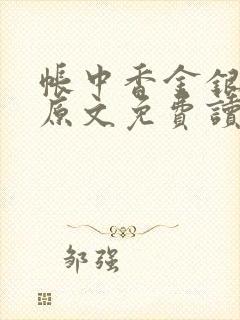 帳中香金銀
原文免費讀
邹强